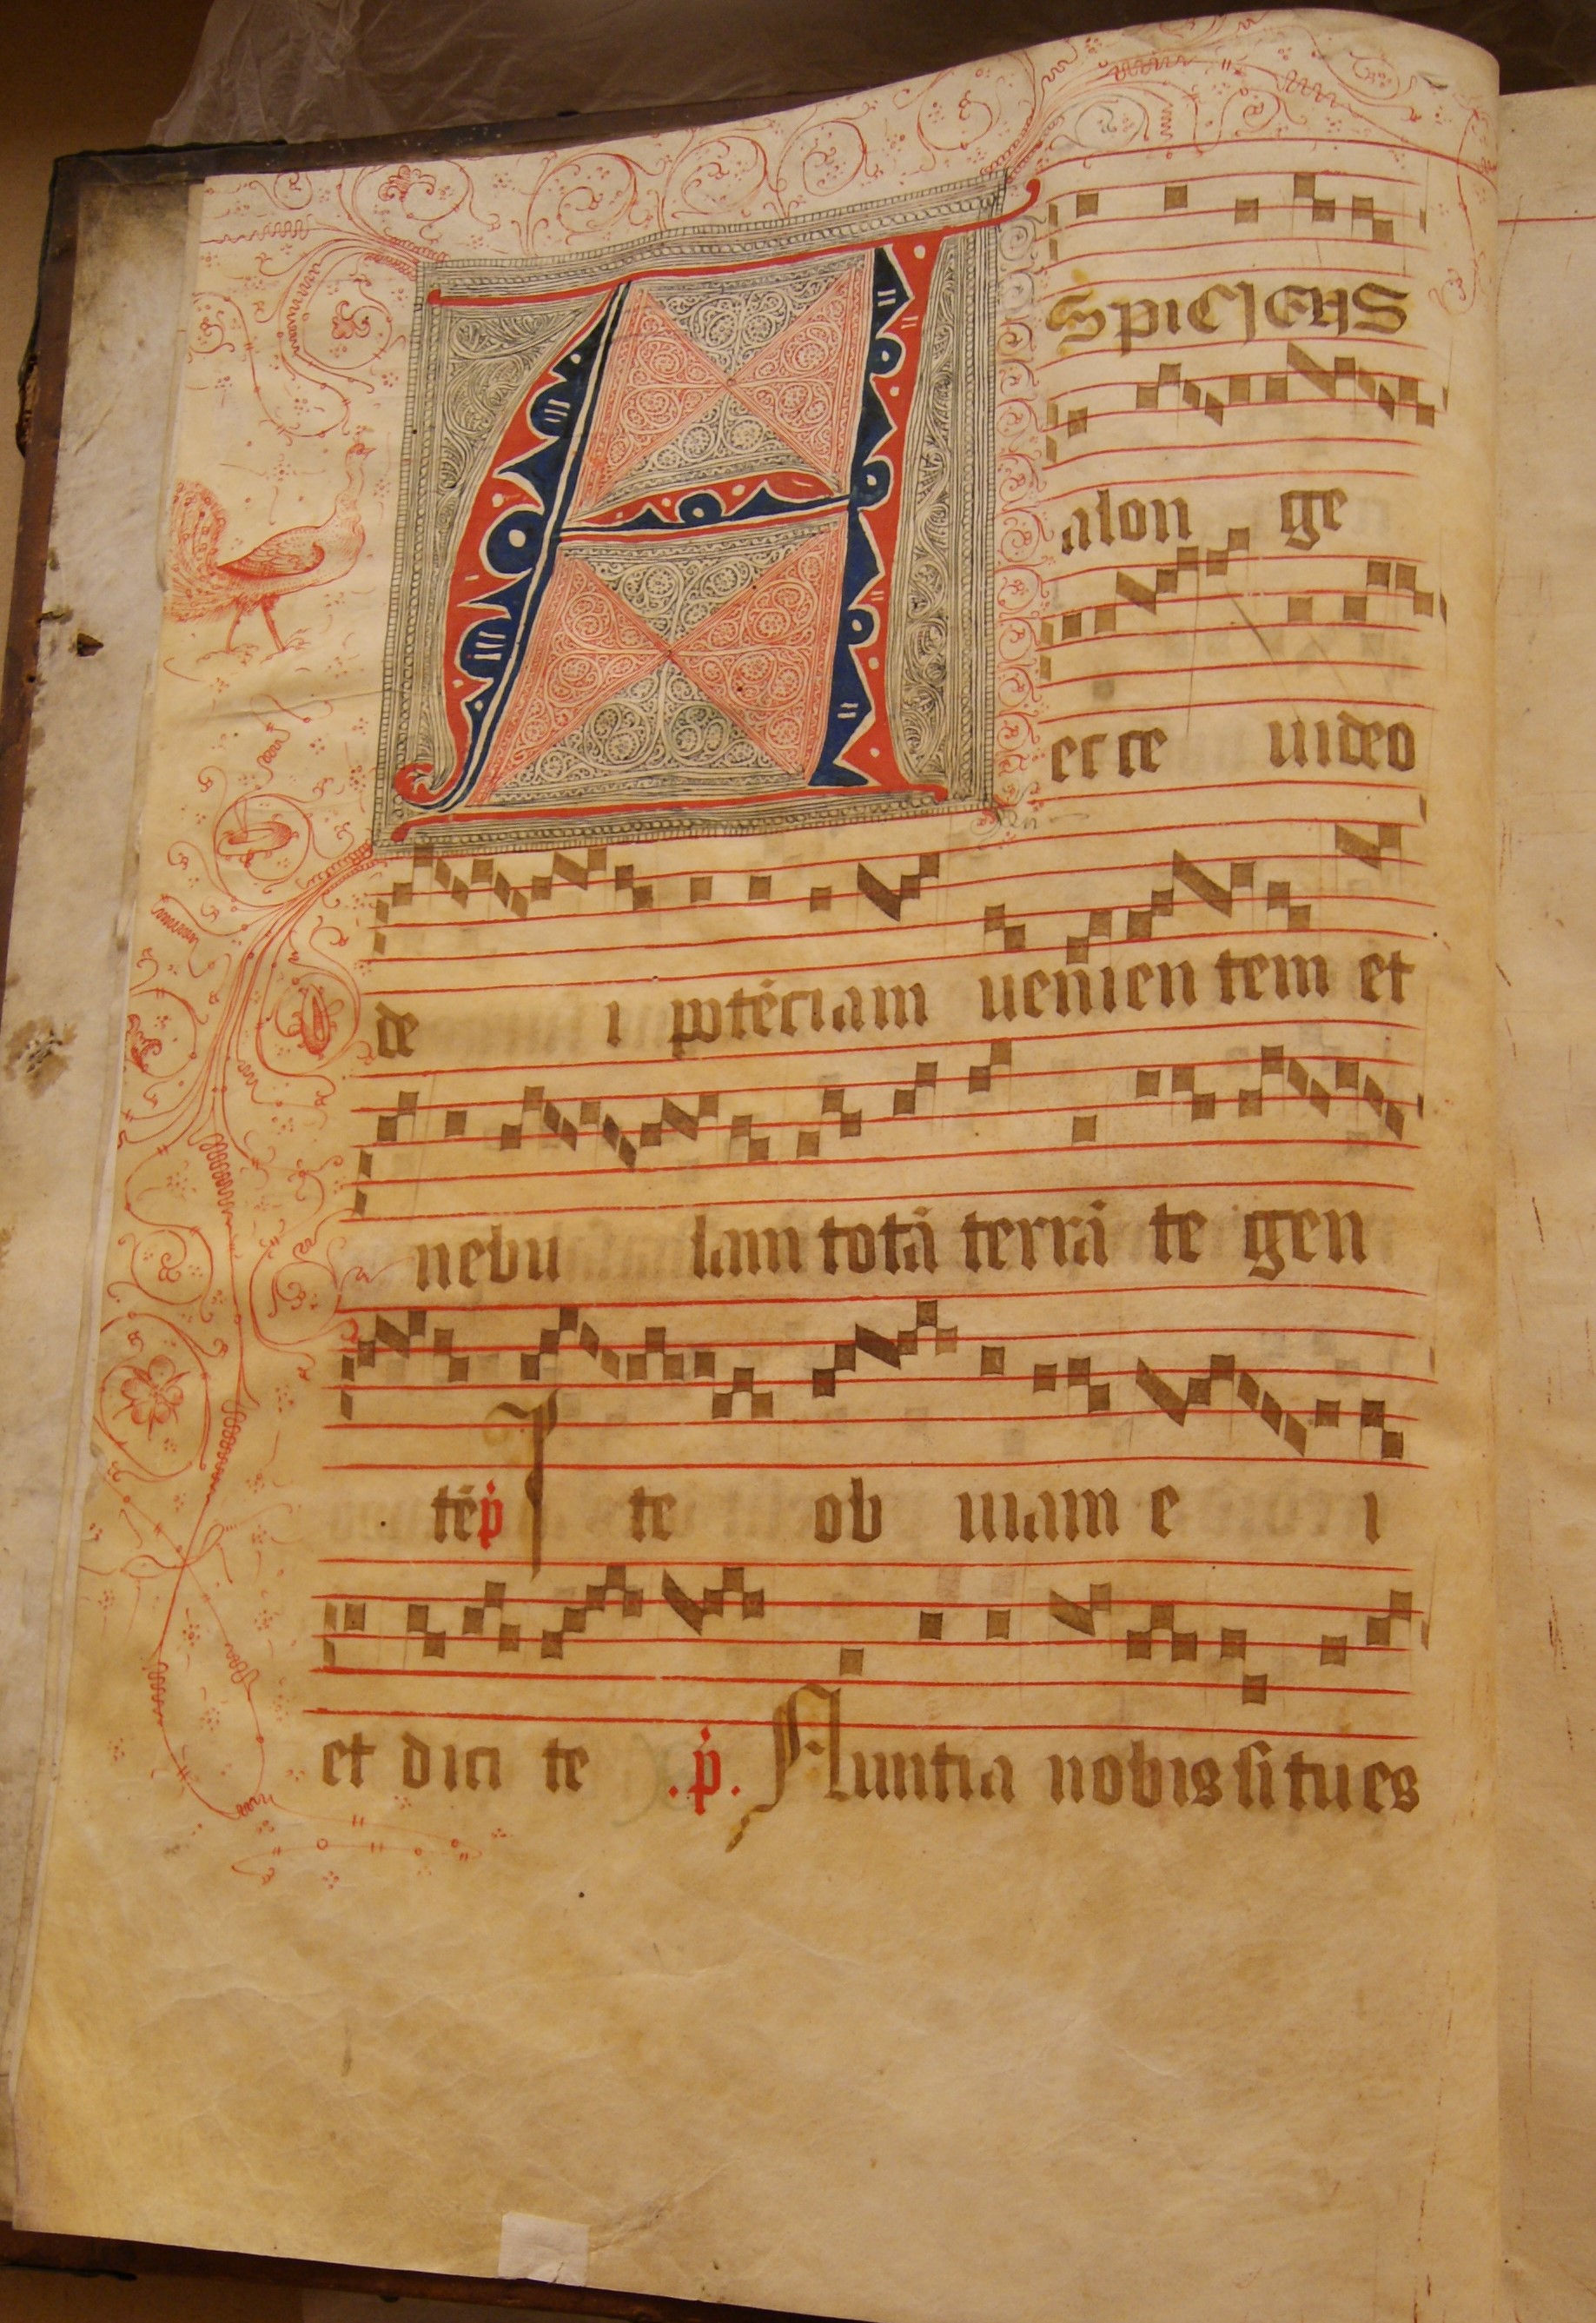 ASPICIENS
a lon ge
ecce uideo
de i potēciam uenien tem et
nebu lam totā terrā te gen
tē p I te ob uiam e i
et dici te .p. Nuntia nobis si tu es